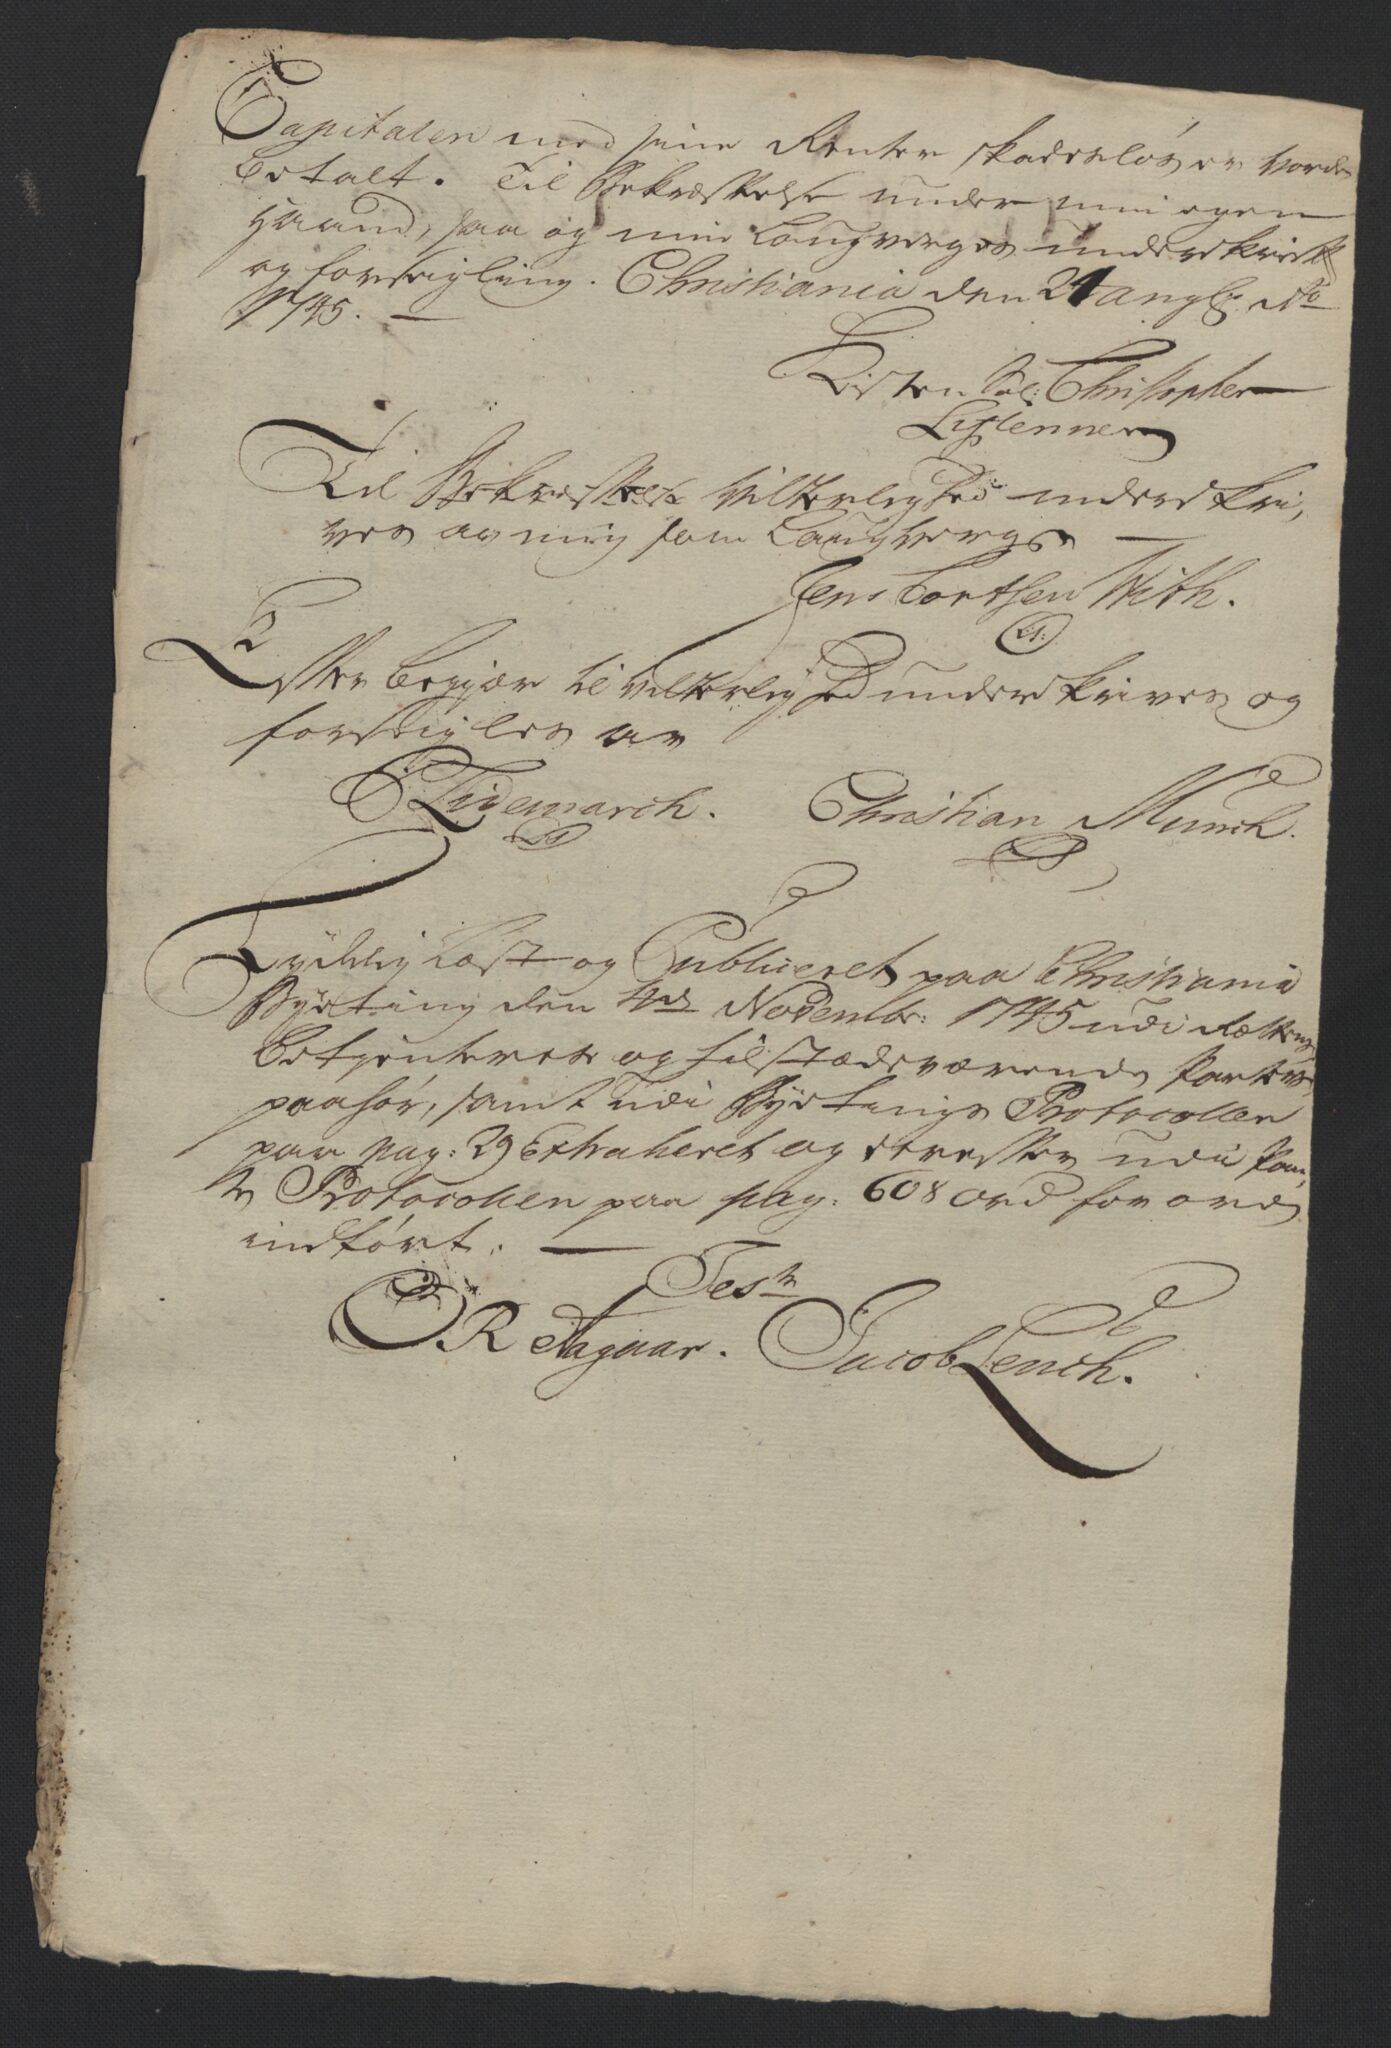 Capitalen med sine Renter skadesløs er vorden
betalt. Til Bekræftelse under min egen
Haand, saa og min Laugverges underskrift
og forseigling. Christiania den 21 Augti Ao
1745.
Kisten Sal: Christopher
Lystenner
Til Bekræftelse Vitterlighed underskri,
ves av mig som Laugverge
Jens Cortsen With.
L.S.
Efter begjær til Vitterlighed underskrives og
forseigles av
Tidemarch. Christian Munch.
LS LS
Lydelig Læst og Publiceret paa Christiania
Byeting den 4de Novembr: 1745 udi Rettens
betjenteres og tilstædeværende Parters
paahør, samt udi Byetings Protocollen
paa pag: 29 Extraheret og derefter udi Pan,
te Protocollen paa pag: 608 ord for ord
indført.
Test
R Aagaar. Jacob Leuch.